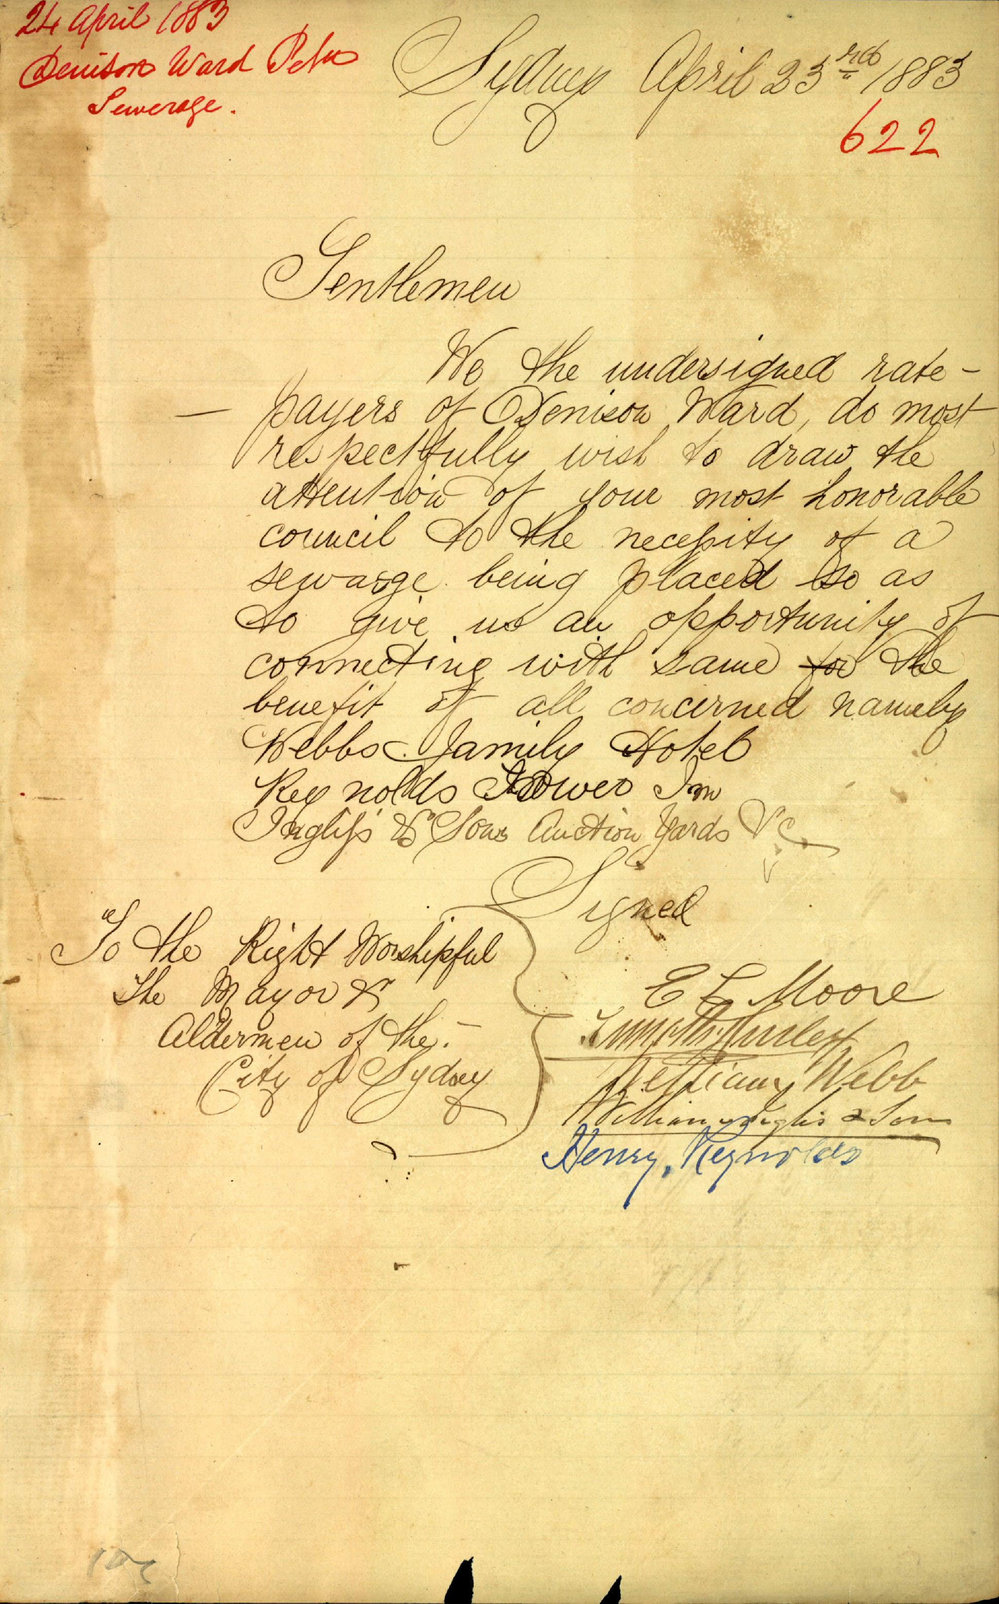 24 April 1883
Denison Ward Petn
Sewerage.
Sydney April 23rd /1883
622
Gentlemen
We the undersigned rate-
- payers of Denison Ward, do most
respectfully wish to draw the
attention of your most honorable
council to the necessity of a
sewarge being placed so as
to give us an opportunity of
connecting with same for the
benefit of all concerned namely
Webbs Family Hotel
Reynolds Tower Inn
Inglis's & Sons Auction Yards &c
Signed
To the Right Worshipful
the Mayor &
Aldermen of the -
City of Sydney
E L Moore
Webb
William Inglis & Son
Henry, Reynolds